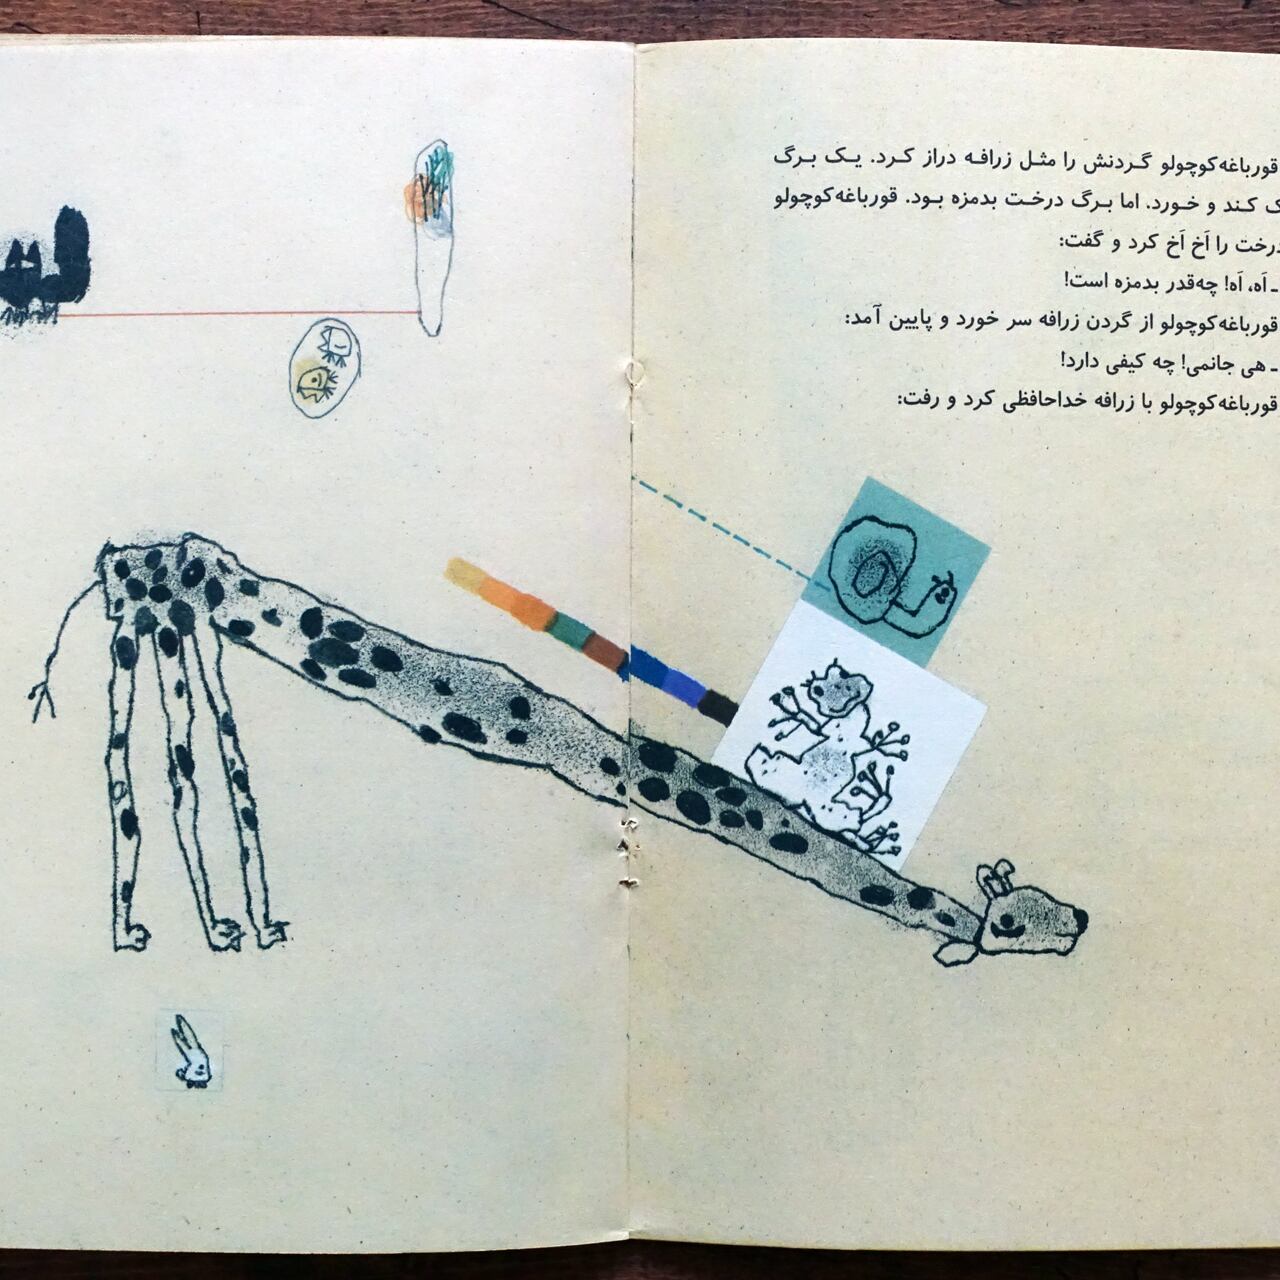 قورباغه‌کوچولو گردنش را مثل زرافه دراز کرد. یک برگ
کند و خورد. اما برگ درخت بدمزه بود. قورباغه‌کوچولو
درخت را اَخ اَخ کرد و گفت:
ـ اَه، اَه! چه‌قدر بدمزه است!
قورباغه‌کوچولو از گردن زرافه سر خورد و پایین آمد:
ـ هی جانمی! چه کیفی دارد!
قورباغه‌کوچولو با زرافه خداحافظی کرد و رفت: